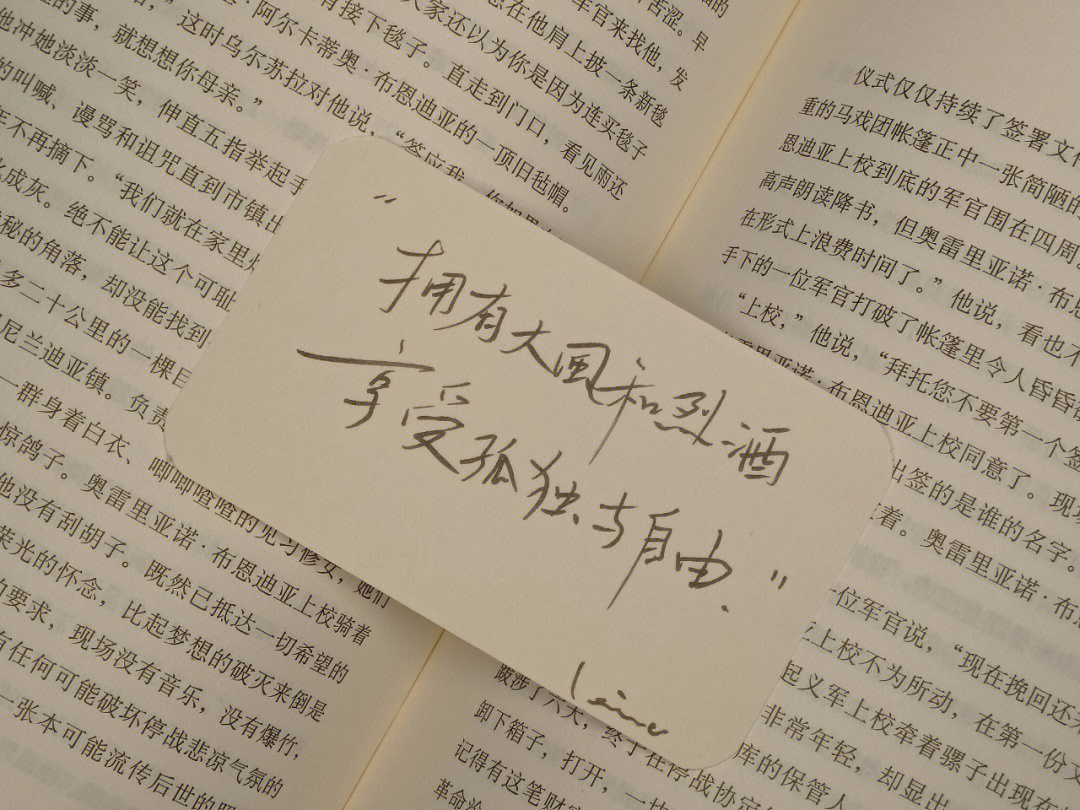 苦涩。早
有接下毯子。
军官来找他，发
的事，就想想你母亲。”
这时乌尔苏拉对他说，
·阿尔卡蒂奥·布恩迪亚的一顶旧毡帽。
想在他肩上披一条新毯
大家还以为你是因为连买毯子
直走到门口，看见雨还
他冲她淡淡一笑，伸直五指举起手
的叫喊、谩骂和诅咒直到市镇出
年不再摘下。“我们就在家里烧
成灰。绝不能让这个可耻
秘的角落，却没能找到
多二十公里的一棵
尼兰迪亚镇。负责
一群身着白衣、唧唧喳喳的见习修女，她们
惊鸽子。奥雷里亚诺·布恩迪亚上校骑着
他没有刮胡子。既然已抵达一切希望的
荣光的怀念，比起梦想的破灭来倒是
要求，现场没有音乐，没有爆竹，
有任何可能破坏停战悲凉气氛的
一张本可能流传后世的
“拥有大風和烈酒
享受孤独与自由.”
仪式仅仅持续了签署文件
重的马戏团帐篷正中一张简陋的
恩迪亚上校到底的军官围在四周。
高声朗读降书，但奥雷里亚诺·布恩
在形式上浪费时间了。”他说，看也不
手下的一位军官打破了帐篷里令人昏昏
“上校，”他说，“拜托您不要第一个签
雷里亚诺·布恩迪亚上校同意了。现
出签的是谁的名字。
着。奥雷里亚诺·布
一位军官说，“现在挽回还
上校不为所动，在第一份文
起义军上校牵着骡子出现在
非常年轻，却显出
库的保管人
陂涉了六天，终于在停战协定
卸下箱子，打开，一块
记得有这笔财
革命沦